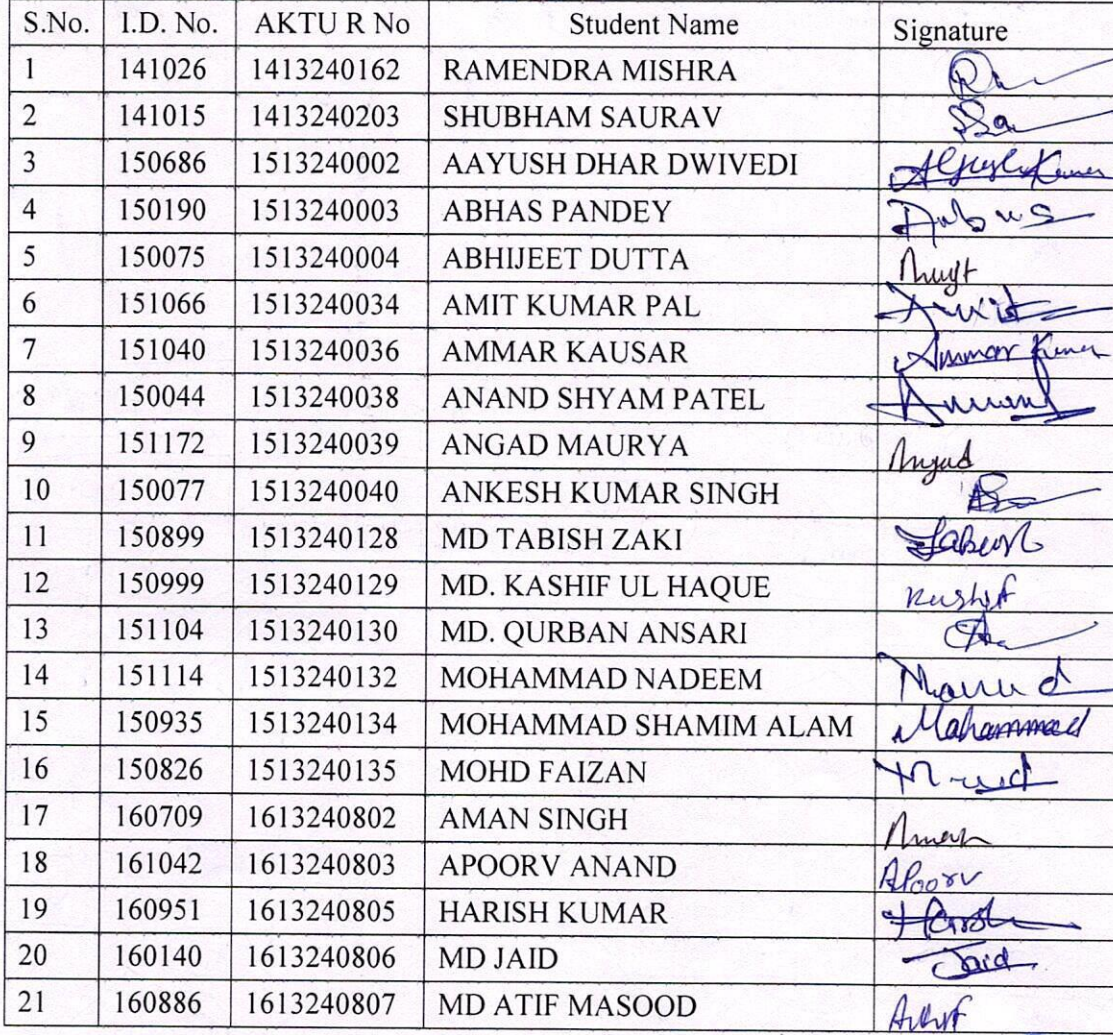 S.No. I.D. No. AKTU R No Student Name Signature
1 141026 1413240162 RAMENDRA MISHRA
2 141015 1413240203 SHUBHAM SAURAV
3 150686 1513240002 AAYUSH DHAR DWIVEDI
4 150190 1513240003 ABHAS PANDEY
5 150075 1513240004 ABHIJEET DUTTA
6 151066 1513240034 AMIT KUMAR PAL Amit
7 151040 1513240036 AMMAR KAUSAR Ammar
8 150044 1513240038 ANAND SHYAM PATEL Anand
9 151172 1513240039 ANGAD MAURYA Angad
10 150077 1513240040 ANKESH KUMAR SINGH
11 150899 1513240128 MD TABISH ZAKI Tabish
12 150999 1513240129 MD. KASHIF UL HAQUE Kashif
13 151104 1513240130 MD. QURBAN ANSARI
14 151114 1513240132 MOHAMMAD NADEEM
15 150935 1513240134 MOHAMMAD SHAMIM ALAM Mohammad
16 150826 1513240135 MOHD FAIZAN
17 160709 1613240802 AMAN SINGH Aman
18 161042 1613240803 APOORV ANAND Apoorv
19 160951 1613240805 HARISH KUMAR Harish
20 160140 1613240806 MD JAID Jaid
21 160886 1613240807 MD ATIF MASOOD